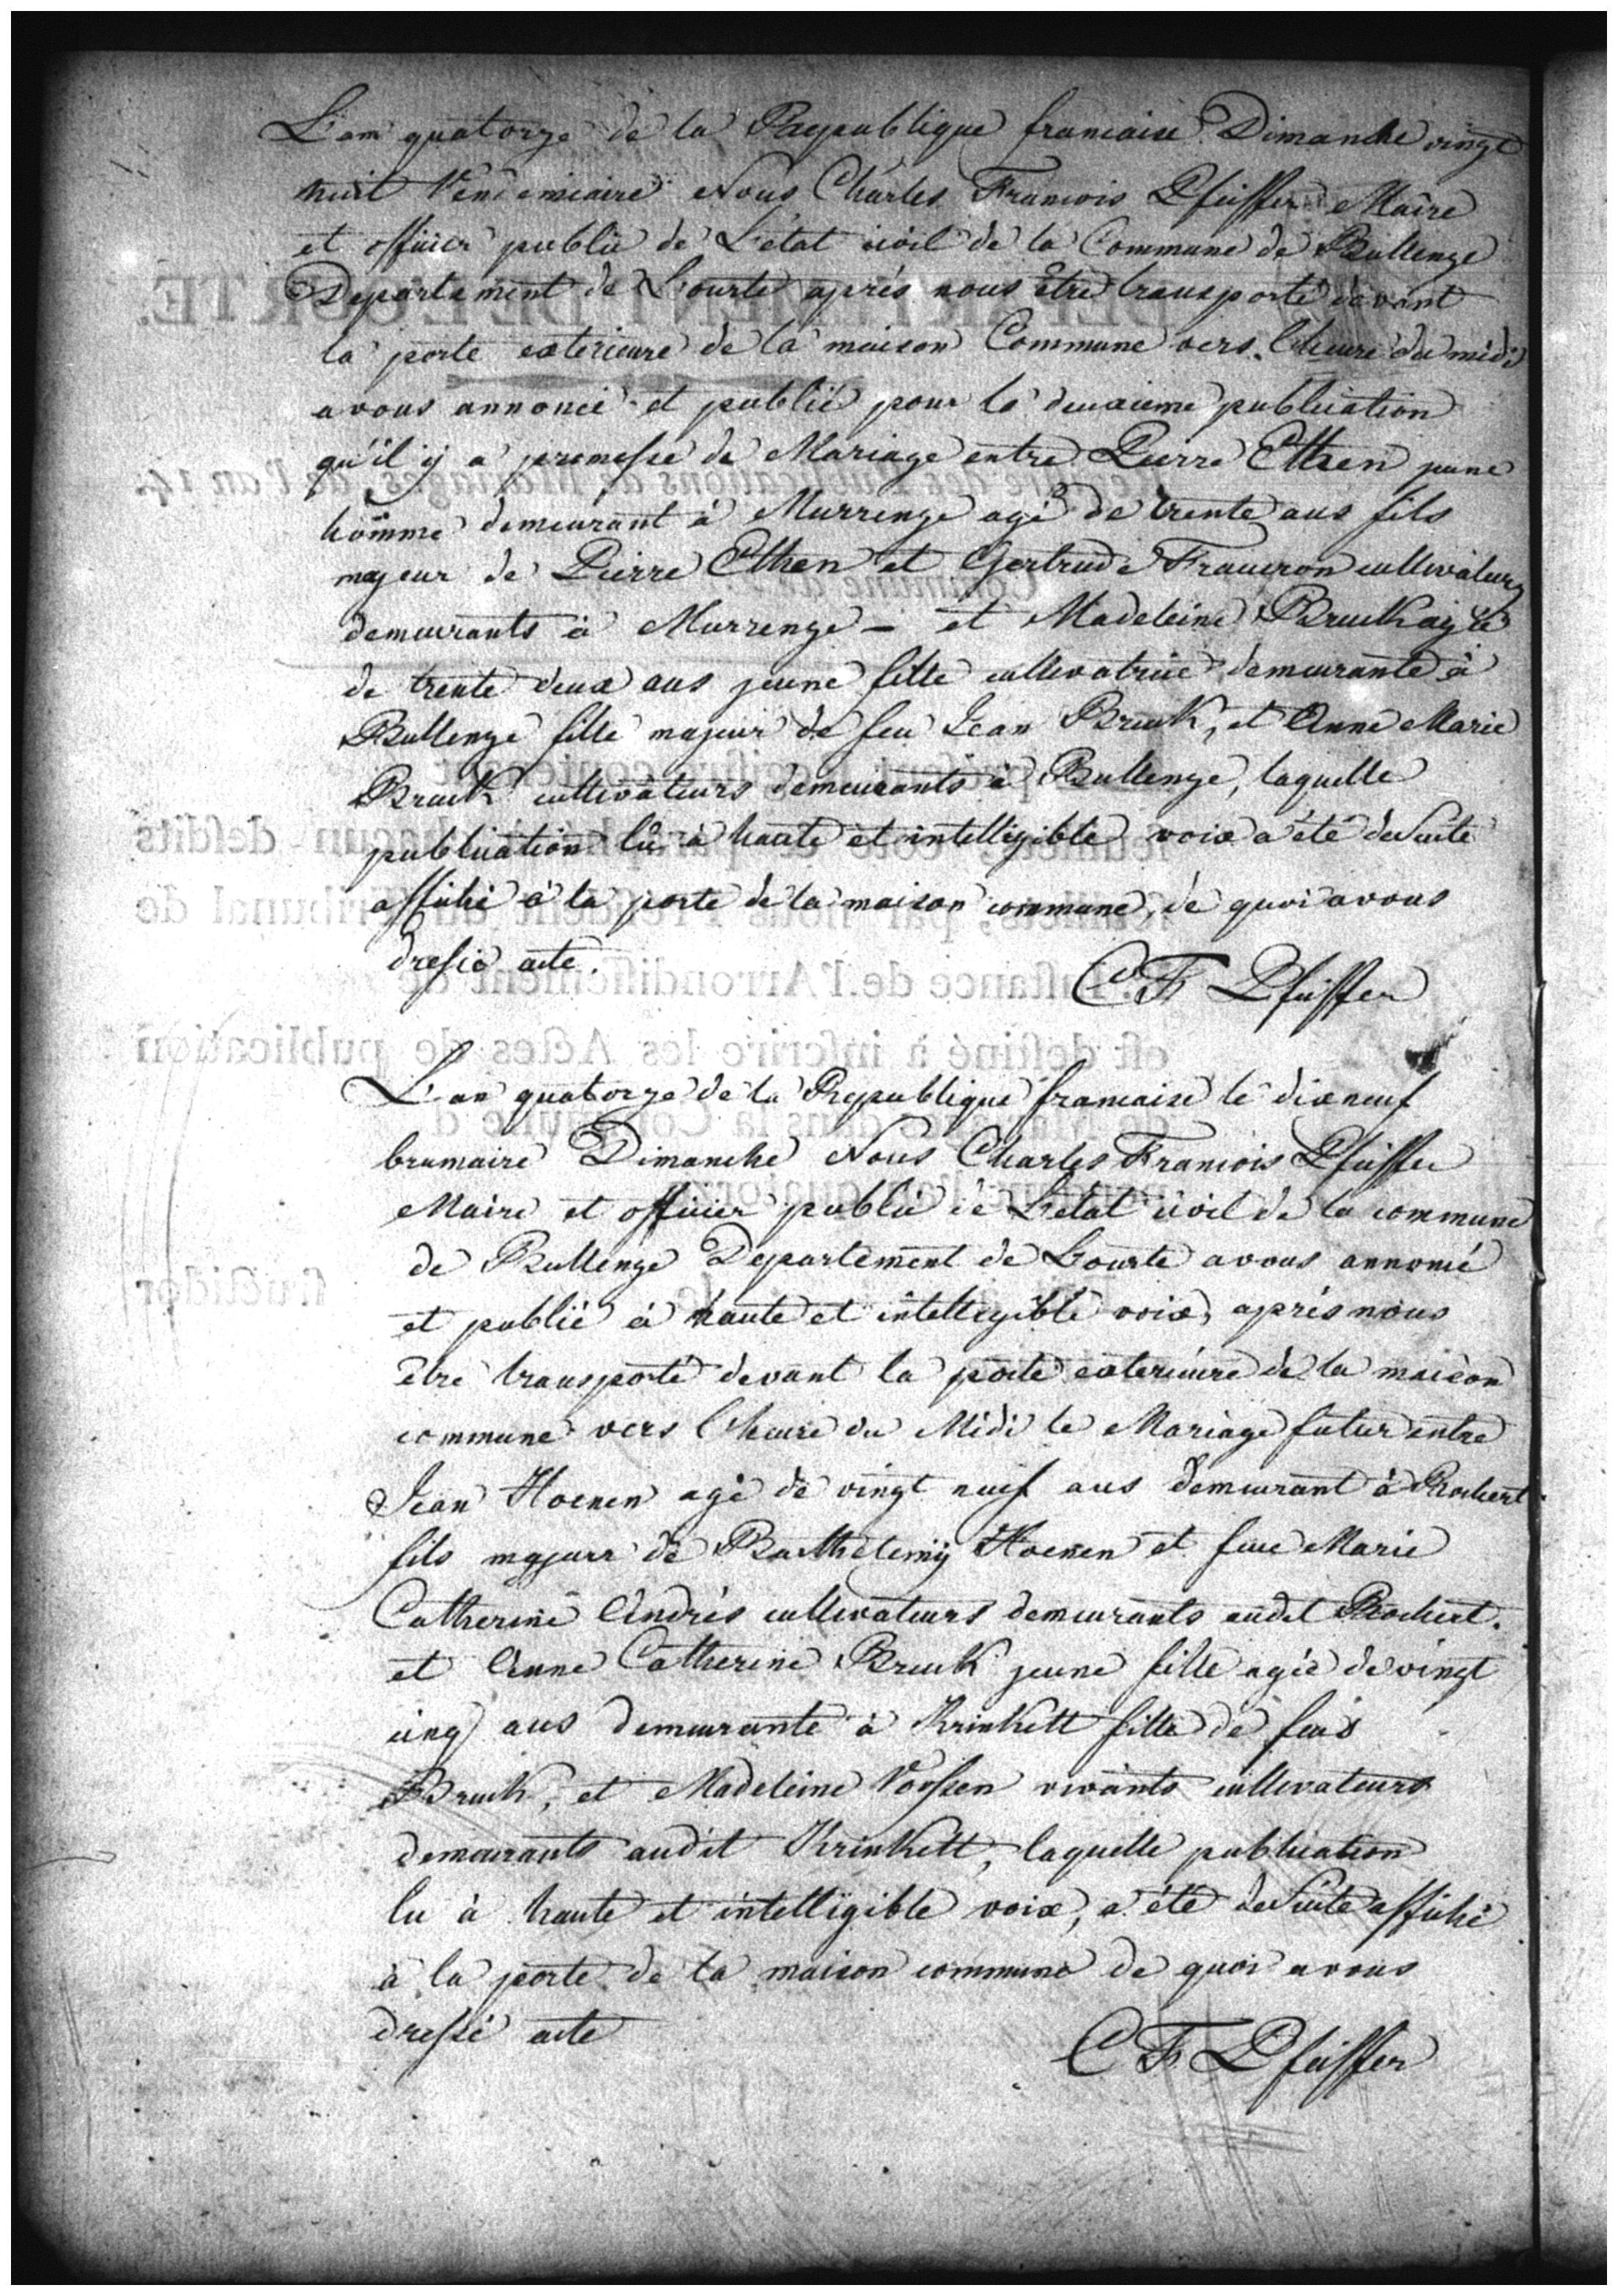 L'an quatorze de la Raepublique francaise Dimanche vingt
huit Vendemiaire Nous Charles Francois Pfeiffer Maire
et officier public de L'état civil de la Commune de Bullenge
Departement de Lourte aprés nous être transporté devant
la porte exterieure de la maison Commune vers l'heure du midi
avons annoncé et publié pour la deuxieme publication
qu'il y a promesse de Mariage entre Pierre Etten jeune
homme demeurant à Murrenge agé de trente ans fils
majeur de Pierre Etten et Gertrude cultivateurs
demeurants à Murrenge - et Madeleine Bruck agée
de trente deux ans jeune fille cultivatrice demeurante à
Bullenge fille majeur de feu Jean Bruck, et Anne Marie
Bruck cultivateurs demeurants à Bullenge, laquelle
publication lu à haute et intelligible voix a été de Suite
affiché à la porte de la maison commune, de quoi avons
dressé acte.
C F Pfeiffer
L'an quatorze de la Republique francaise le dix neuf
brumaire Dimanche Nous Charles Francois Pfeiffer
Maire et officier public de L'etat civil de la commune
de Bullenge Departement de Lourte avons annoncé
et publié à haute et intelligible voix, aprés nous
être transporté devant la porte exterieure de la maison
commune vers l'heure du Midi le Mariage futur entre
Jean Hoenen agé de vingt neuf ans demeurant à Rochert
fils majeur de Barthelemÿ Hoenen et feue Marie
Catherine Andrés cultivateurs demeurants audit Rochert.
et Anne Catherine Bruck jeune fille agée de vingt
cinq ans demeurante à Krinkelt fille de feus
Bruck, et Madeleine Vossen vivants cultivateurs
demeurants audit Krinkelt, laquelle publication
lu à haute et intelligible voix, a été de Suite affiché
à la porte de la maison commune de quoi avons
dressé acte
C F Pfeiffer